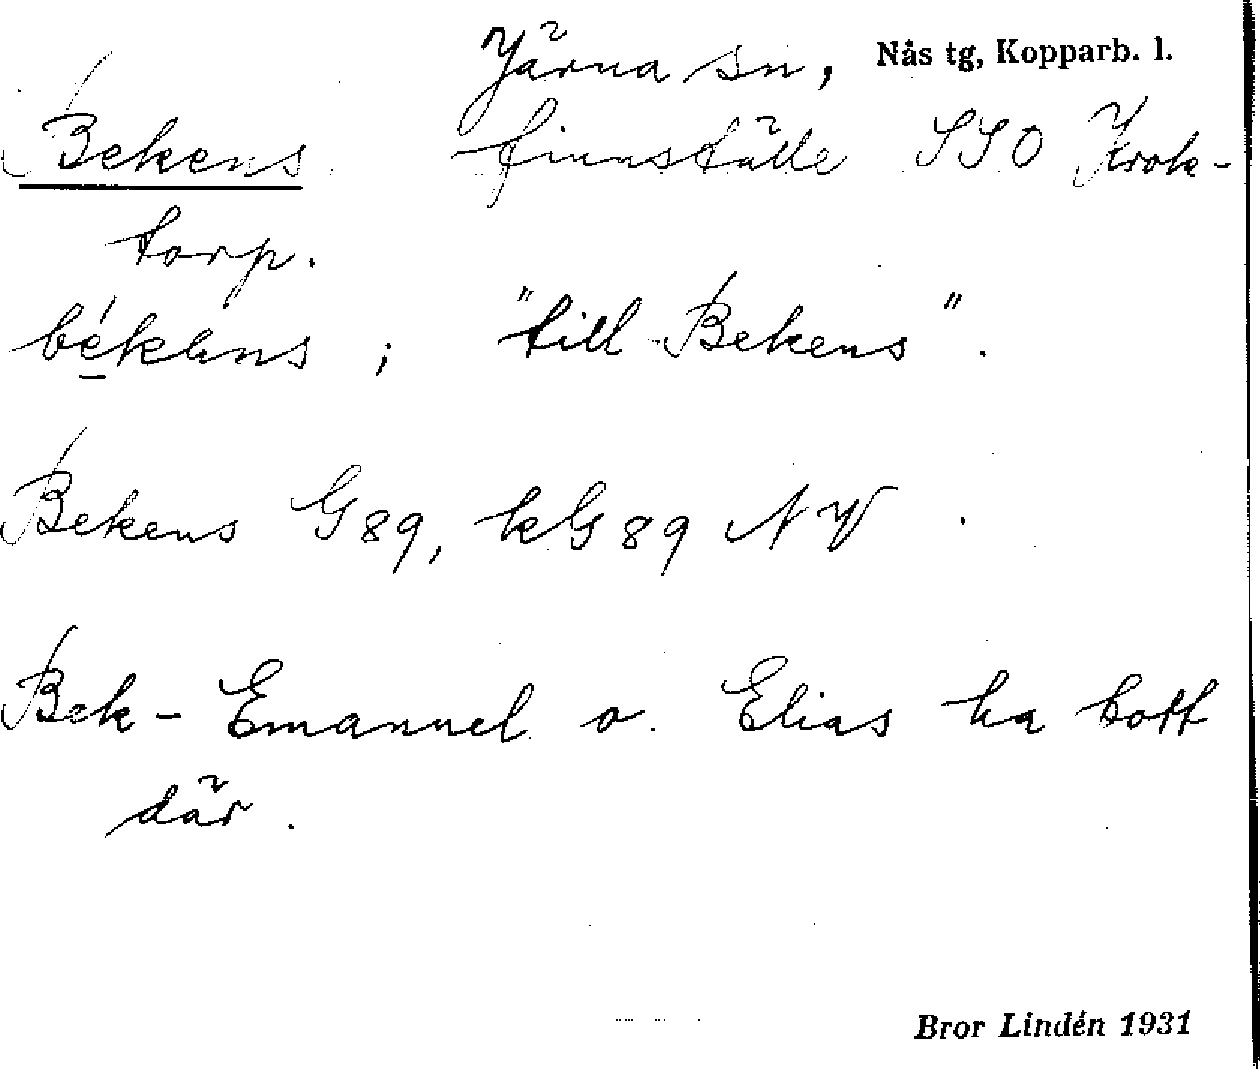 Järna sn, Nås tg, Kopparb. l.
Bekens finnställe SSO Krok-
torp.
békəns ; "till Bekens".
Bekens G89, kG89 NV
Bek-Emanuel o. Elias ha bott
där.
Bror Lindén 1931